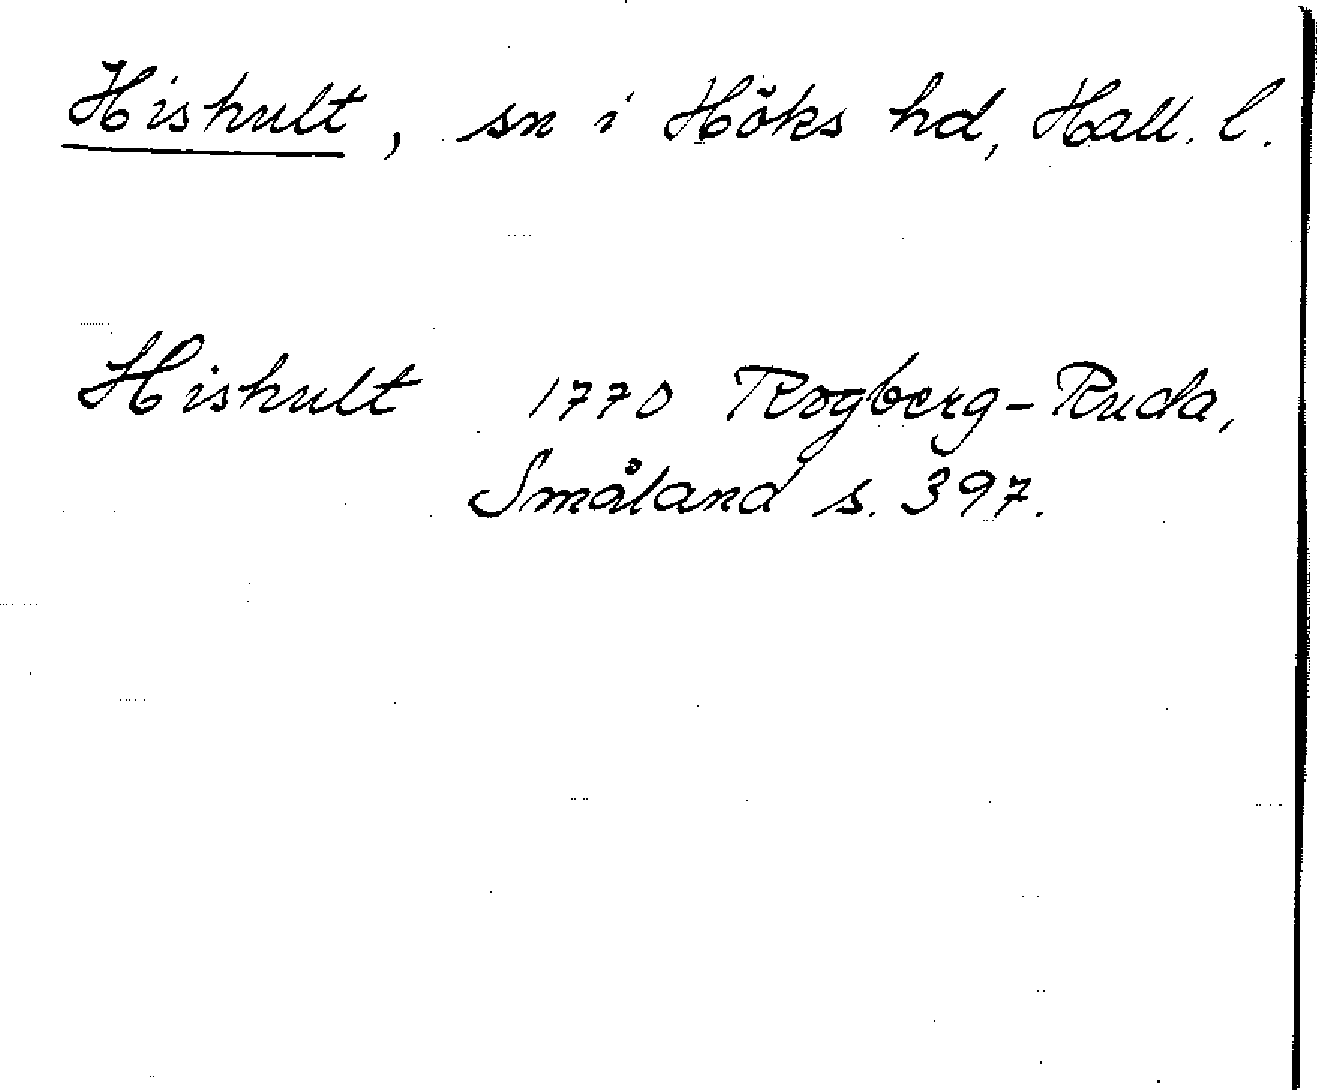 Hishult, sn i Höks hd, Hall. l.
Hishult 1770 Rogberg-Ruda,
Småland s. 397.